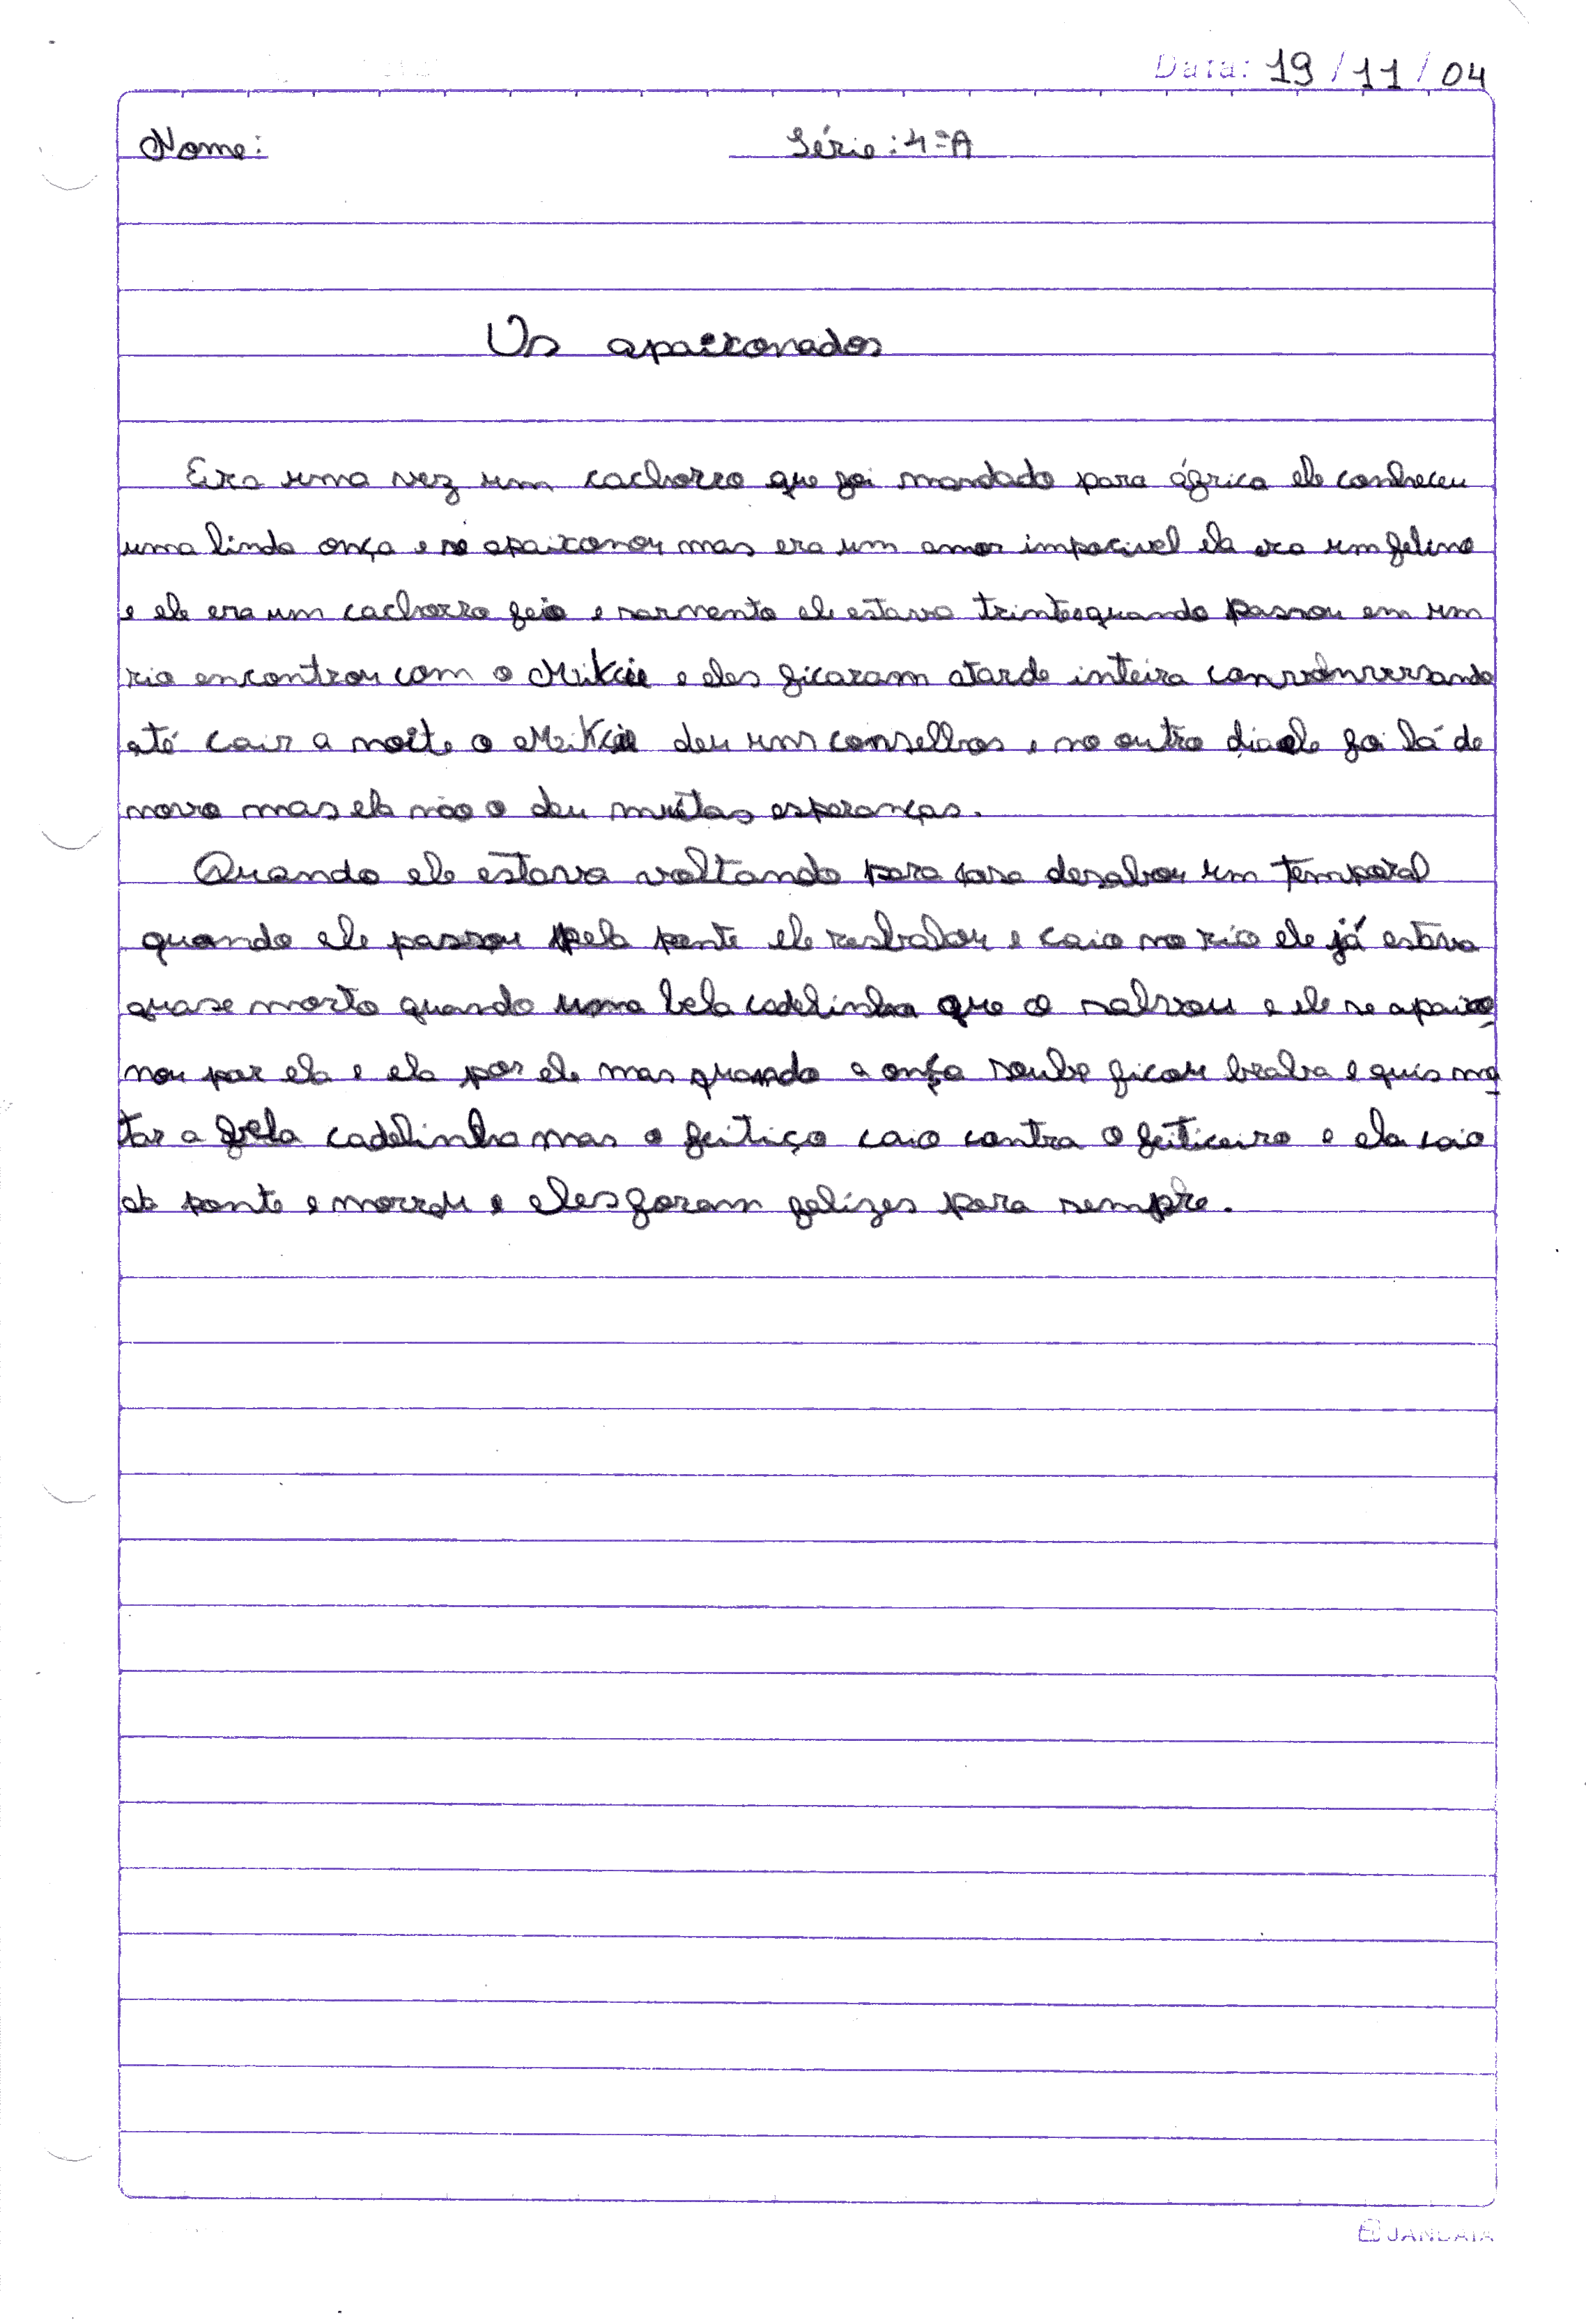 Data: 19/11/04
Nome: Série: 4ªA
Os apaixonados
Era uma vez um cachorro que foi mandado para áfrica ele conheceu
uma linda onça e se apaixonou mas era um amor impocivel ela era um felino
e ele era um cachorro feio e sarnento ele estava triste quando passou em um
rio encontrou com o e eles ficaram atarde inteira
até cair a noite o deu uns conselhos e no outro dia ele foi lá de
novo mas ela não o deu muitas esperanças.
Quando ele estava voltando para casa desabou um temporal
quando ele passou pela ponte ele resbalou e caio no rio ele já estava
quase morto quando uma bela cadelinha que o salvou e ele se apaixo
nou por ela e ela por ele mas quando a onça soube ficou braba e quis ma
tar a bela cadelinha mas o feitiço caio contra o feiticeiro e ela caio
da ponte e morreu e eles foram felizes para sempre.
JANDAIA